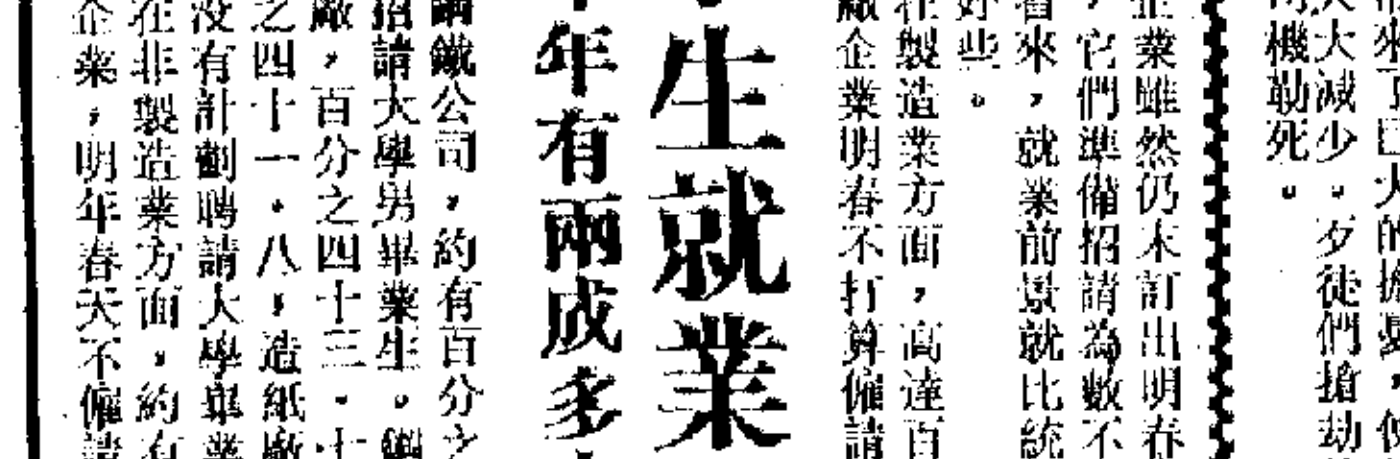 來了巨大的擔憂，使
大大減少。歹徒們搶劫
機勒死。
企業雖然仍未訂出明春
，它們準備招請為數不
看來，就業前景就比統
好些。
在製造業方面，高達百
廠企業明春不打算僱請
生就業
年有兩成多
鋼鐵公司，約有百分之
招請大學男畢業生。鋼
廠，百分之四十三．七
之四十一．八，造紙廠
沒有計劃聘請大學畢業
在非製造業方面，約有
企業，明年春天不僱請